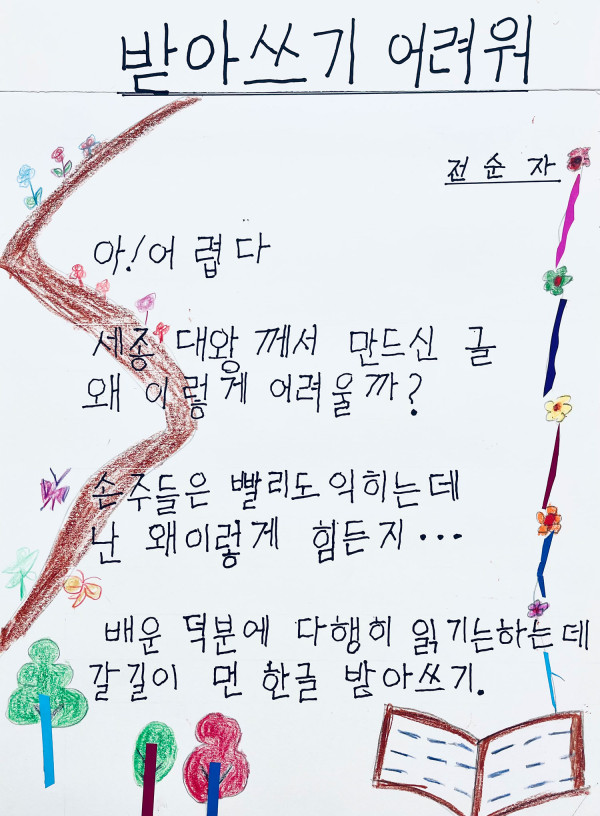 받아쓰기 어려워
전순자
아! 어렵다
세종 대왕 께서 만드신 글
왜 이렇게 어려울까?
손주들은 빨리도 익히는데
난 왜이렇게 힘든지...
배운 덕분에 다행히 읽기는하는데
갈길이 먼 한글 받아쓰기.